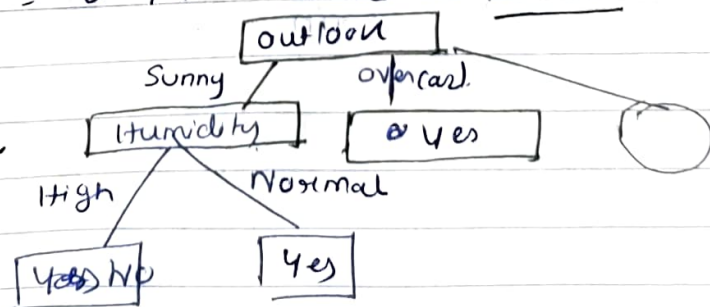 Outlook
Sunny
Overcast.
Humidity
Yes
High
Normal
No
Yes